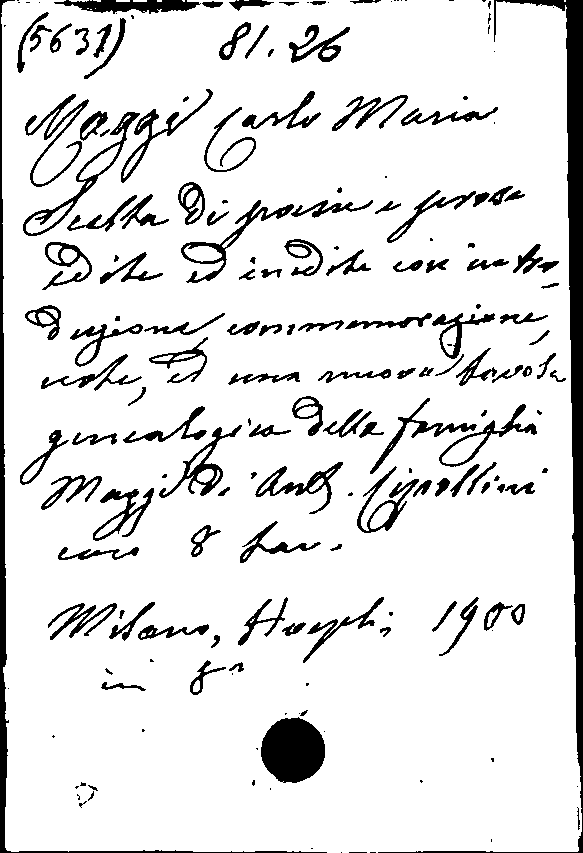 (5631) 81.26
Maggi Carlo Maria
Scelta di poesie e prose
edite ed inedite con intro-
duzione, commemorazione,
note, ed una nuova tavola
genealogica della famiglia
Maggi di Ant. Cipollini
con 8 tav.
Milano, Hoepli, 1900
in 8°